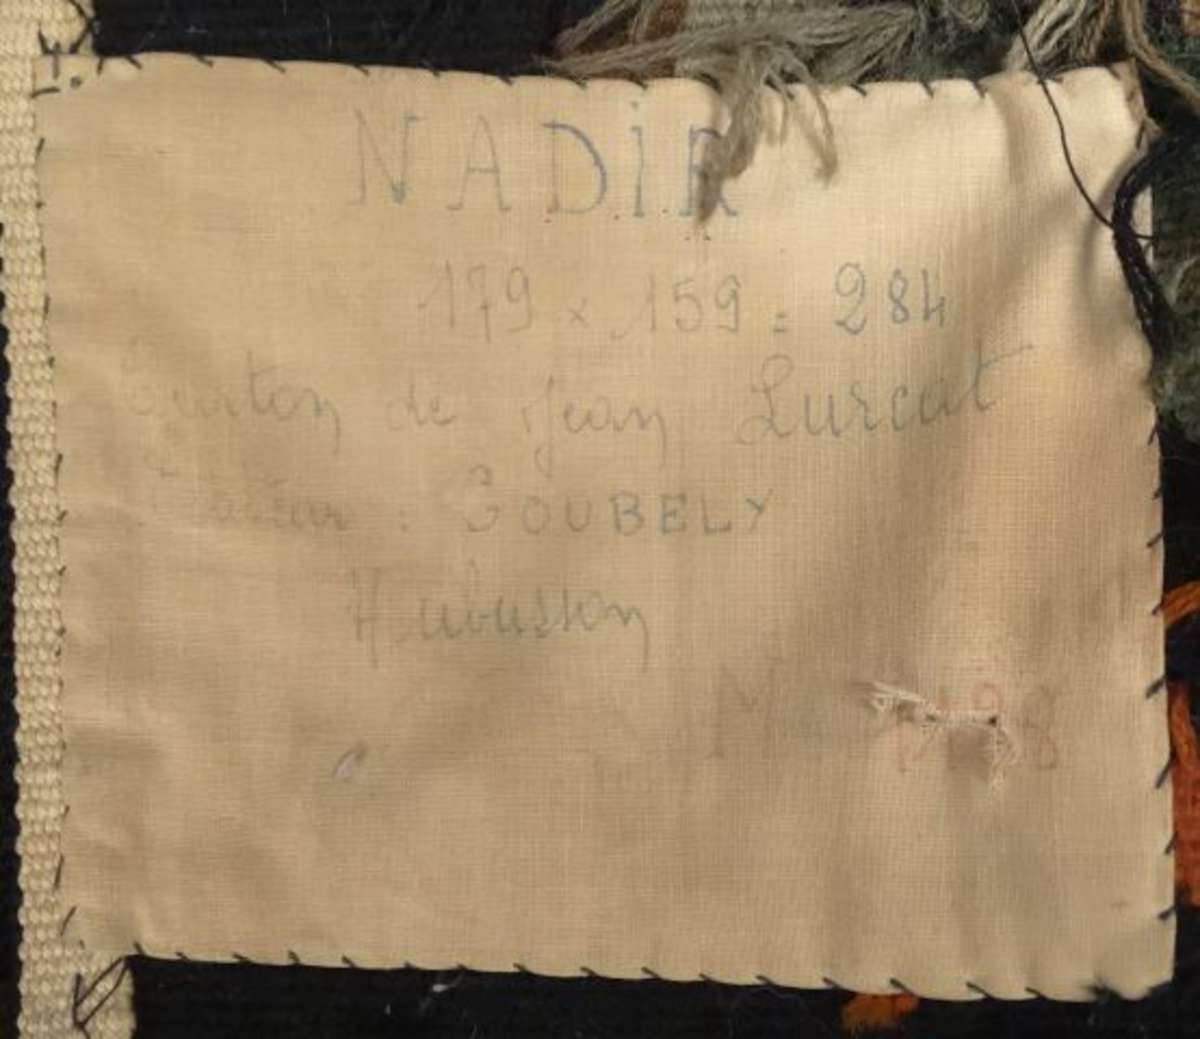 NADIR
179 x 159 = 284
Carton de Jean Lurcat
: GOUBELY
Aubusson
M